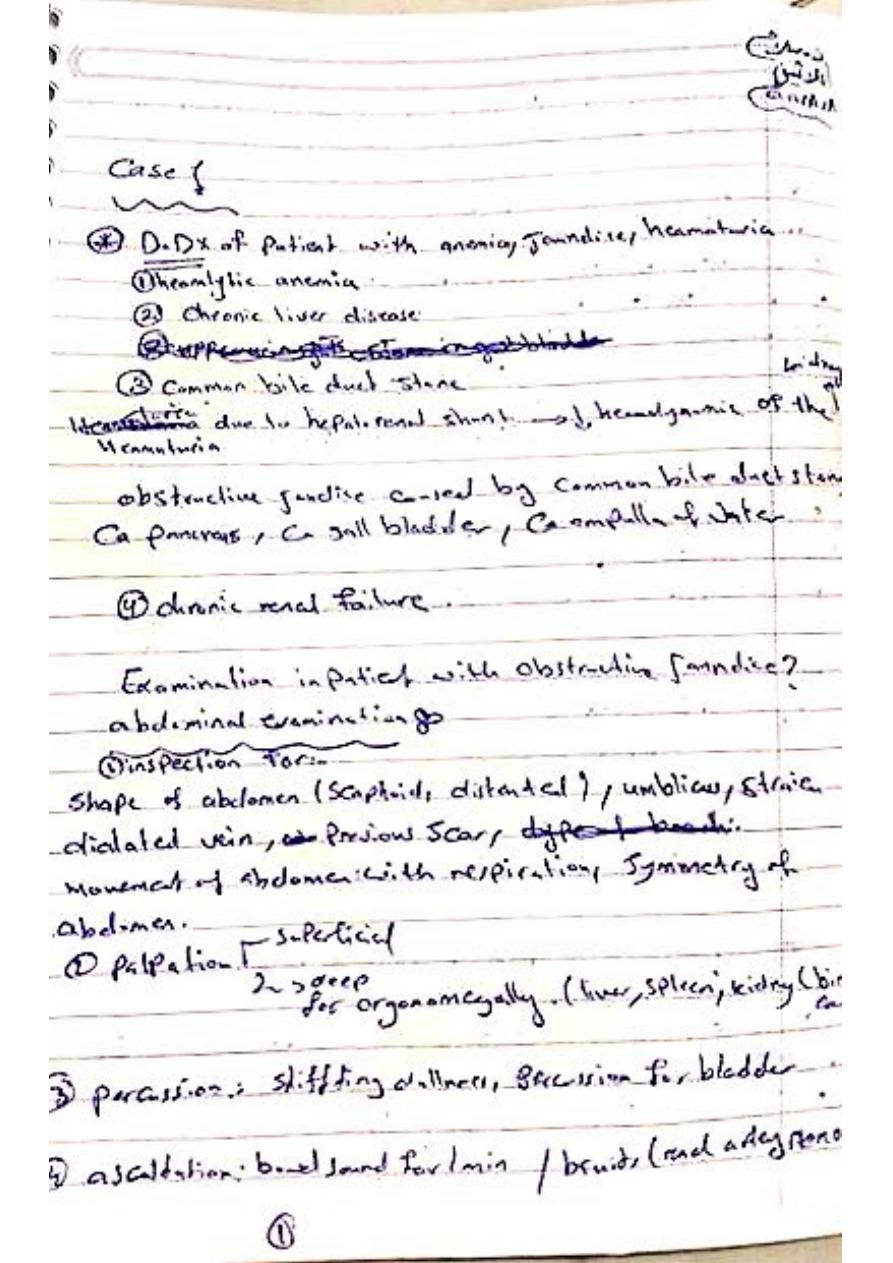 Case
D.Dx of patient with anemia, Jaundise, heamaturia
① heamlytic anemia
② Chronic liver disease
③ Common bile duct stone
due to hepatorenal shunt → ↓ heamdynamic of the
Heamaturia
obstructive jandise caused by Common bile duct ston
Ca pancreas, Ca gall bladder, Ca ampulla of Vater
④ chronic renal failure.
Examination in patient with obstructive Jaundice?
abdominal examination
① inspection for:-
Shape of abdomen (Scaphoid, distented), umblicus, straie
dialated vein, Previous Scar,
movement of abdomen with respiration, Symmetry of
abdomen.
② palpation superficial
2 → deep
for orgonomegally. (liver, spleen, kidney (bi
③ percussion: shiffting dullness, percussion for bladder
④ ascultation: bowel sound for 1 min / bruits (renal artey steno
①